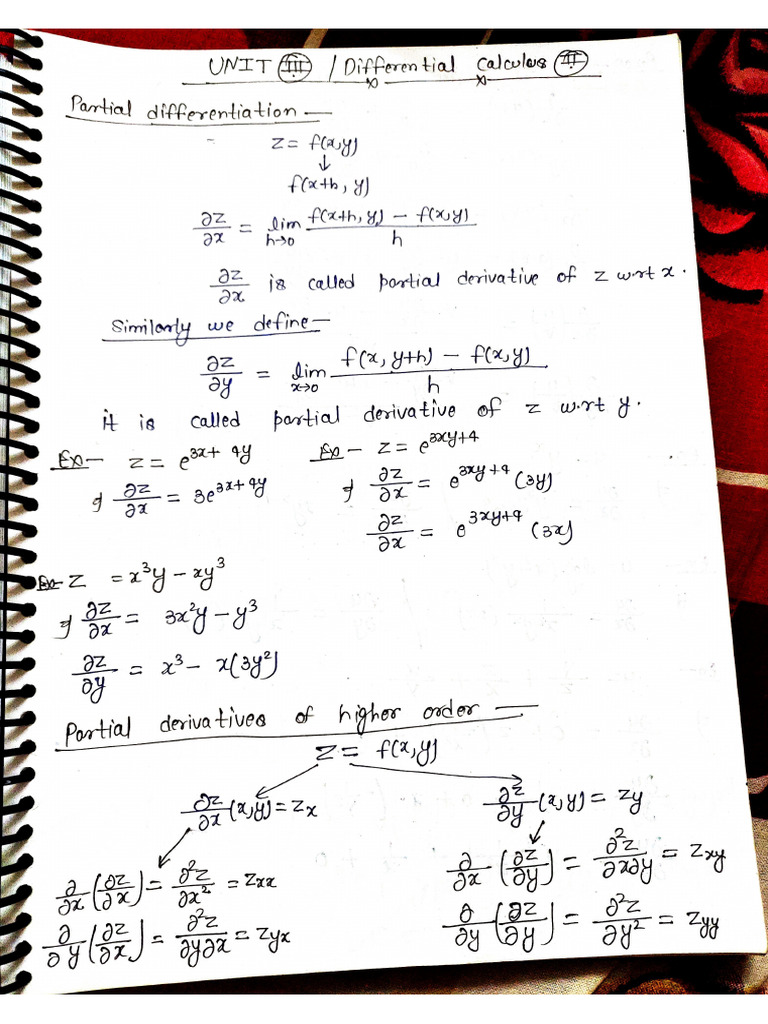 UNIT III / Differential Calculus II
Partial differentiation —
z = f(x,y)
↓
f(x+h, y)
∂z/∂x = lim h→0 f(x+h, y) − f(x,y) / h
∂z/∂x is called partial derivative of z w.r.t x.
Similarly we define —
∂z/∂y = lim x→0 f(x, y+h) − f(x,y) / h
it is called partial derivative of z w.r.t y.
Ex — z = e^(3x+4y)
∂z/∂x = 3e^(3x+4y)
Ex — z = e^(3xy+4)
∂z/∂x = e^(3xy+4) (3y)
∂z/∂x = e^(3xy+4) (3x)
Ex — z = x³y − xy³
∂z/∂x = 3x²y − y³
∂z/∂y = x³ − x(3y²)
Partial derivatives of higher order —
z = f(x,y)
∂z/∂x (x,y) = zx
∂z/∂y (x,y) = zy
∂/∂x (∂z/∂x) = ∂²z/∂x² = zxx
∂/∂y (∂z/∂x) = ∂²z/∂y∂x = zyx
∂/∂x (∂z/∂y) = ∂²z/∂x∂y = zxy
∂/∂y (∂z/∂y) = ∂²z/∂y² = zyy